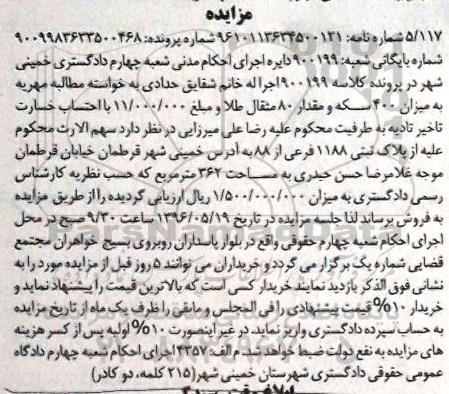 مزایده
۵/۱۱۷ شماره نامه: ۹۶۱۰۱۱۳۶۳۴۵۰۰۱۲۱ شماره پرونده: ۹۰۰۹۹۸۳۶۳۳۵۰۰۴۶۸
شماره بایگانی شعبه: ۹۰۰۱۹۹ دایره اجرای احکام مدنی شعبه چهارم دادگستری خمینی
شهر در پرونده کلاسه ۹۰۰۱۹۹ اجرا له خانم شقایق حدادی به خواسته مطالبه مهریه
به میزان ۴۰۰ سکه و مقدار ۸۰ مثقال طلا و مبلغ ۱۱/۰۰۰/۰۰۰ با احتساب خسارت
تاخیر تادیه به طرفیت محکوم علیه رضا علی میرزایی در نظر دارد سهم الارث محکوم
علیه از پلاک ثبتی ۱۱۸۸ فرعی از ۸۸ به آدرس خمینی شهر قرطمان خیابان قرطمان
موجه غلامرضا حسن حیدری به مساحت ۳۶۲ مترمربع که حسب نظریه کارشناس
رسمی دادگستری به میزان ۱/۵۰۰/۰۰۰/۰۰۰ ریال ارزیابی گردیده را از طریق مزایده
به فروش برساند لذا جلسه مزایده در تاریخ ۱۳۹۶/۰۵/۱۹ ساعت ۹/۳۰ صبح در محل
اجرای احکام شعبه چهارم حقوقی واقع در بلوار پاسداران روبروی بسیج خواهران مجتمع
قضایی شماره یک برگزار می گردد و خریداران می توانند ۵ روز قبل از مزایده مورد را به
نشانی فوق الذکر بازدید نمایند خریدار کسی است که بالاترین قیمت را پیشنهاد نماید و
خریدار ۱۰% قیمت پیشنهادی را فی المجلس و مابقی را ظرف یک ماه از تاریخ مزایده
به حساب سپرده دادگستری واریز نماید، در غیر اینصورت ۱۰% اولیه پس از کسر هزینه
های مزایده به نفع دولت ضبط خواهد شد. م الف: ۳۳۵۷ اجرای احکام شعبه چهارم دادگاه
عمومی حقوقی دادگستری شهرستان خمینی شهر (۲۱۵ کلمه، دو کادر)